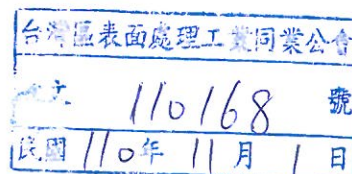 台灣區表面處理工業同業公會
文 110168 號
民國 110 年 11 月 1 日